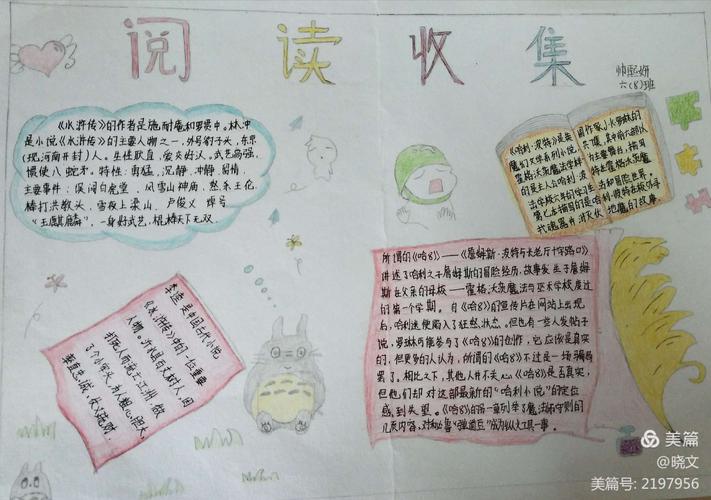 阅读收集
帅熙妍
六(8)班
《水浒传》的作者是施耐庵和罗贯中。林冲
是小说《水浒传》的主要人物之一,外号豹子头,东京
(现河南开封)人。生性耿直,爱交好汉。武艺高强,
惯使八蛇矛。特性:勇猛,沉静,冷静
主要事件:误闯白虎堂、风雪山神庙,
棒打洪教头,雪夜上梁山,卢俊义 绰号
“玉麒麟”,一身好武艺,棍棒天下无双。
《哈利·波特》是英国作家J.K.罗琳的
魔幻文学系列小说,共7集,其中前六部以
霍格沃茨魔法学校为主要舞台,描写
的是主人公哈利·波特在霍格沃茨魔
法学校六年的学习生活和冒险故事。
第七本描写的是哈利·波特在
找魂器并消灭伏地魔的故事
李逵是中国古代小说
《水浒传》中的一位重要
人物。沂水县百丈村人,因
打死人而逃亡江州,做
了个小牢头,为人粗心胆大,
率直忠诚,仗义疏财。
所谓的《哈8》——《詹姆斯·波特与长老厅十字路口》
讲述了哈利之子詹姆斯的冒险经历。故事发生于詹姆
斯在父亲的母校——霍格沃茨魔法与巫术学校度过
的第一个学期。自《哈8》的宣传片在网站上出现
后,哈利迷便陷入了狂热状态。但也有一些人发帖子
说,罗琳可能参与了《哈8》的创作,它应该是真实
的,但更多的人认为,所谓的《哈8》不过是一场骗局
罢了。相比之下,其他人并不关心《哈8》是否真实,
但他们却对这部最新的“哈利小说”的定位
感到失望。《哈8》的第一章列举了魔法师守则的
几页内容,
美篇
@晓文
美篇号: 2197956